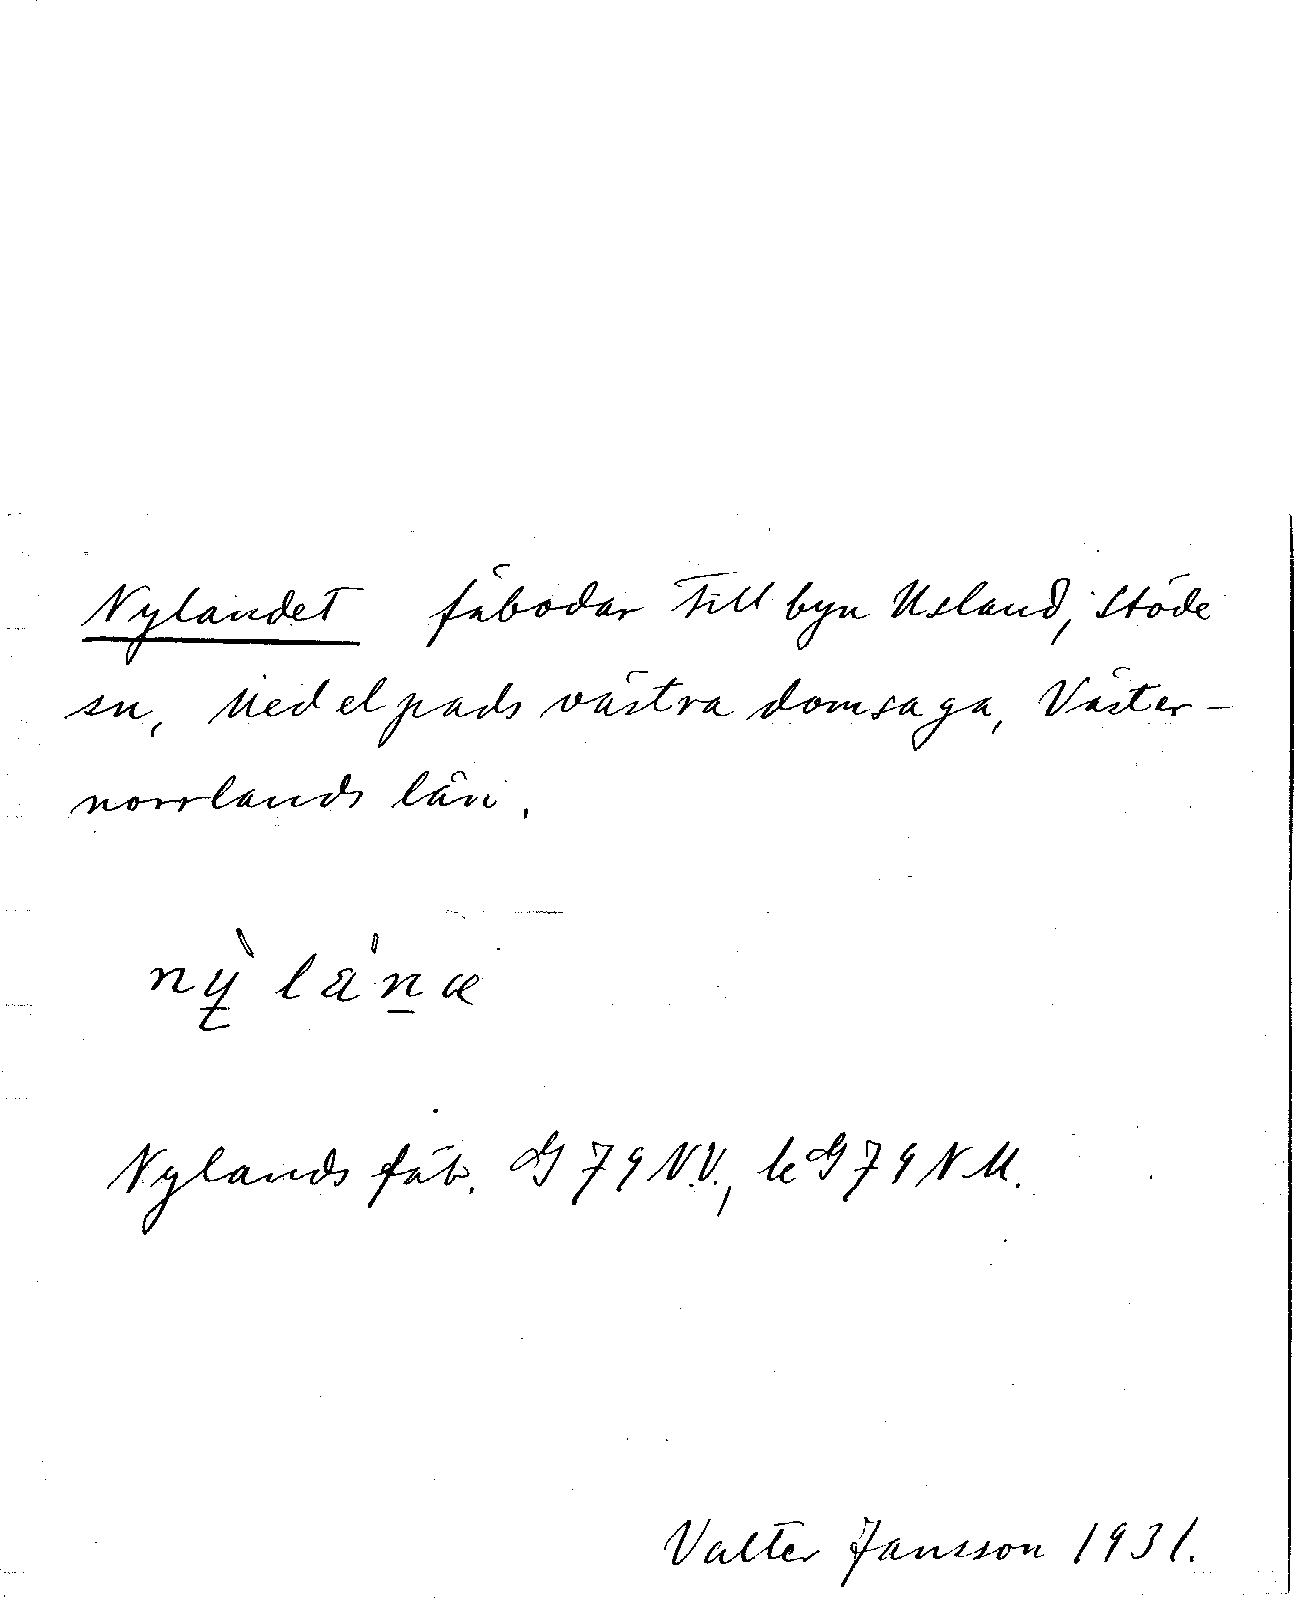 Nylandet fäbodar till byn Usland, Stöde
sn, Medelpads västra domsaga, Väster-
norrlands län.
nỳlánæ
Nylands fäb. G 79 N.V., le G 79 N M.
Valter Jansson 1931.